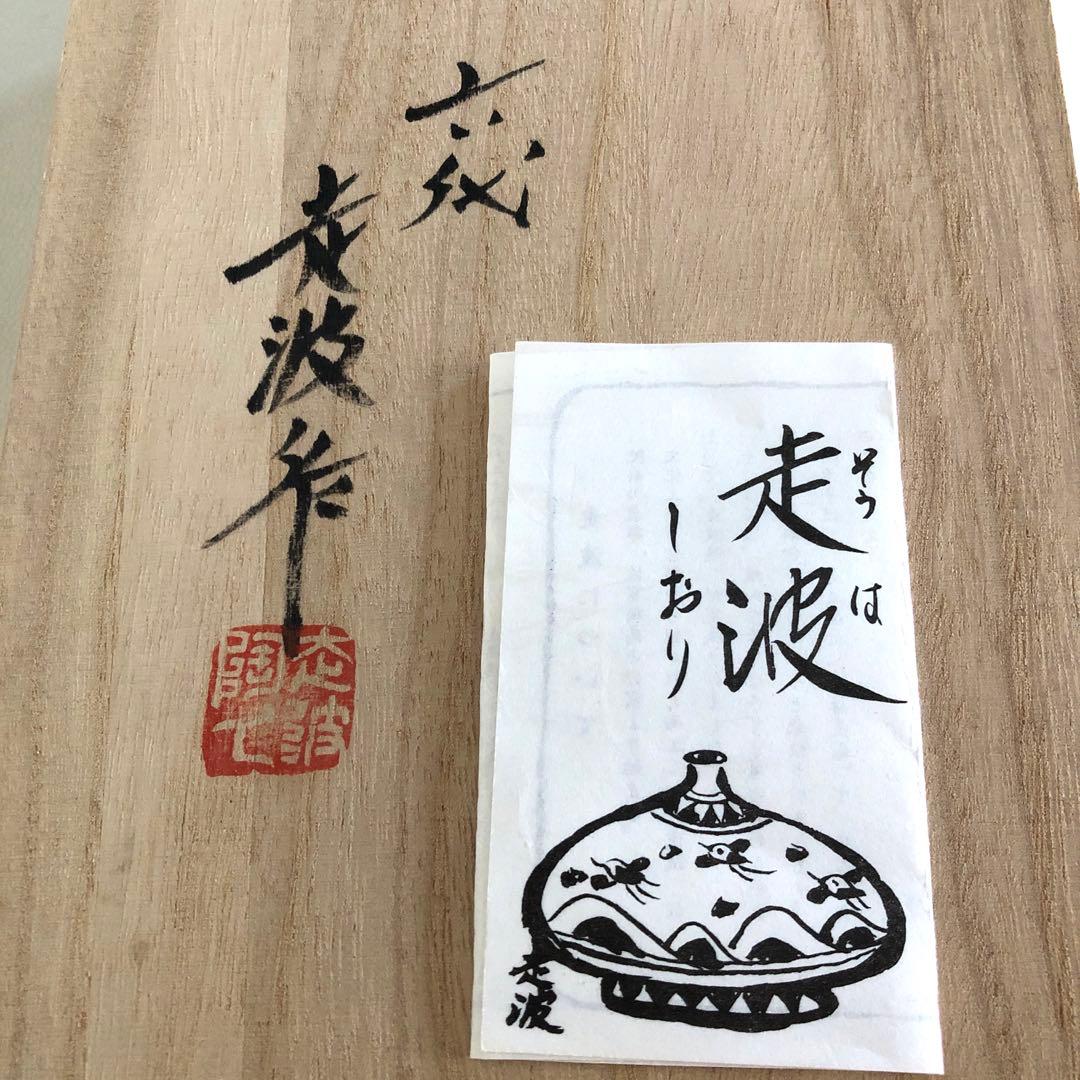 六代
走波作
走波
陶七
走波
そうは
しおり
走波